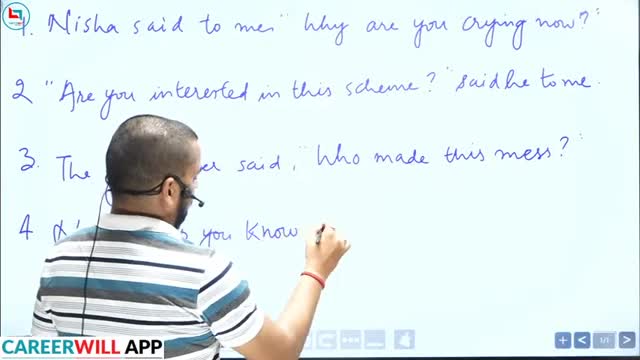 1. Nisha said to me, "Why are you crying now?"
2 "Are you interested in this scheme?" said he to me.
3. The said, "Who made this mess?"
4 you know
CAREERWILL APP
1/1